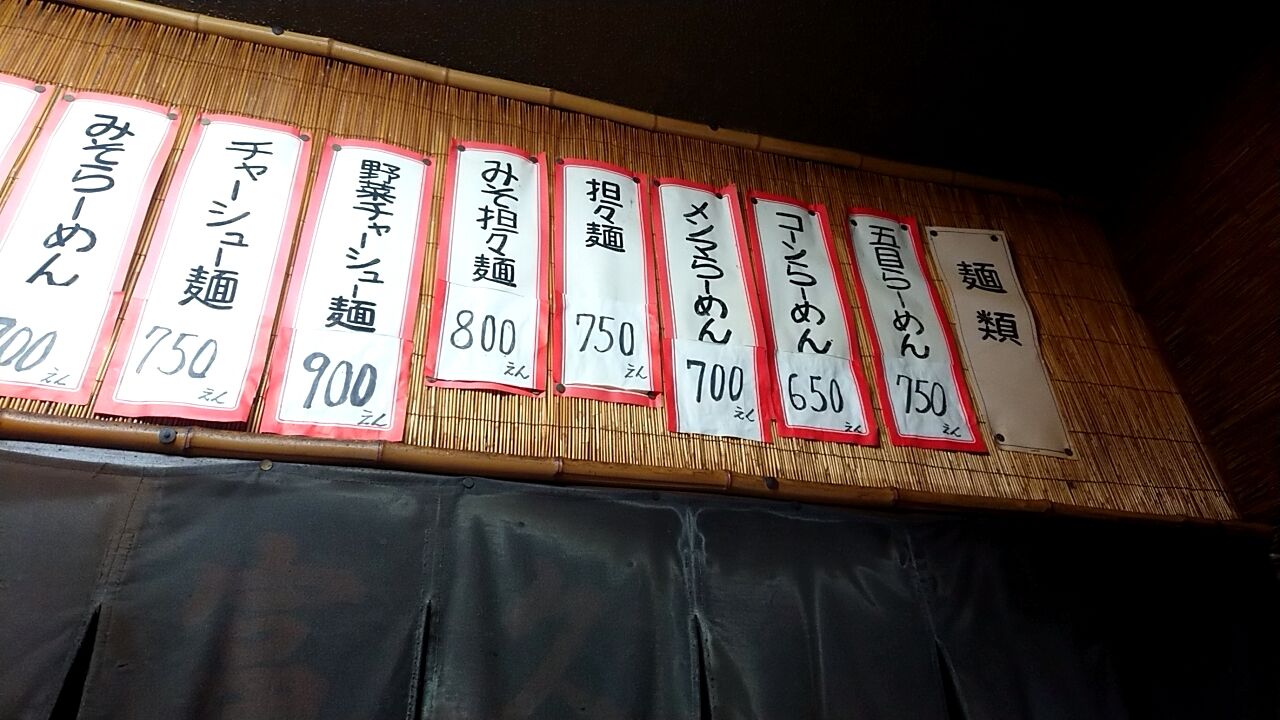 麺類
五目らーめん
750えん
コーンらーめん
650えん
メンマらーめん
700えん
担々麺
750えん
みそ担々麺
800えん
野菜チャーシュー麺
900えん
チャーシュー麺
750えん
みそらーめん
700えん